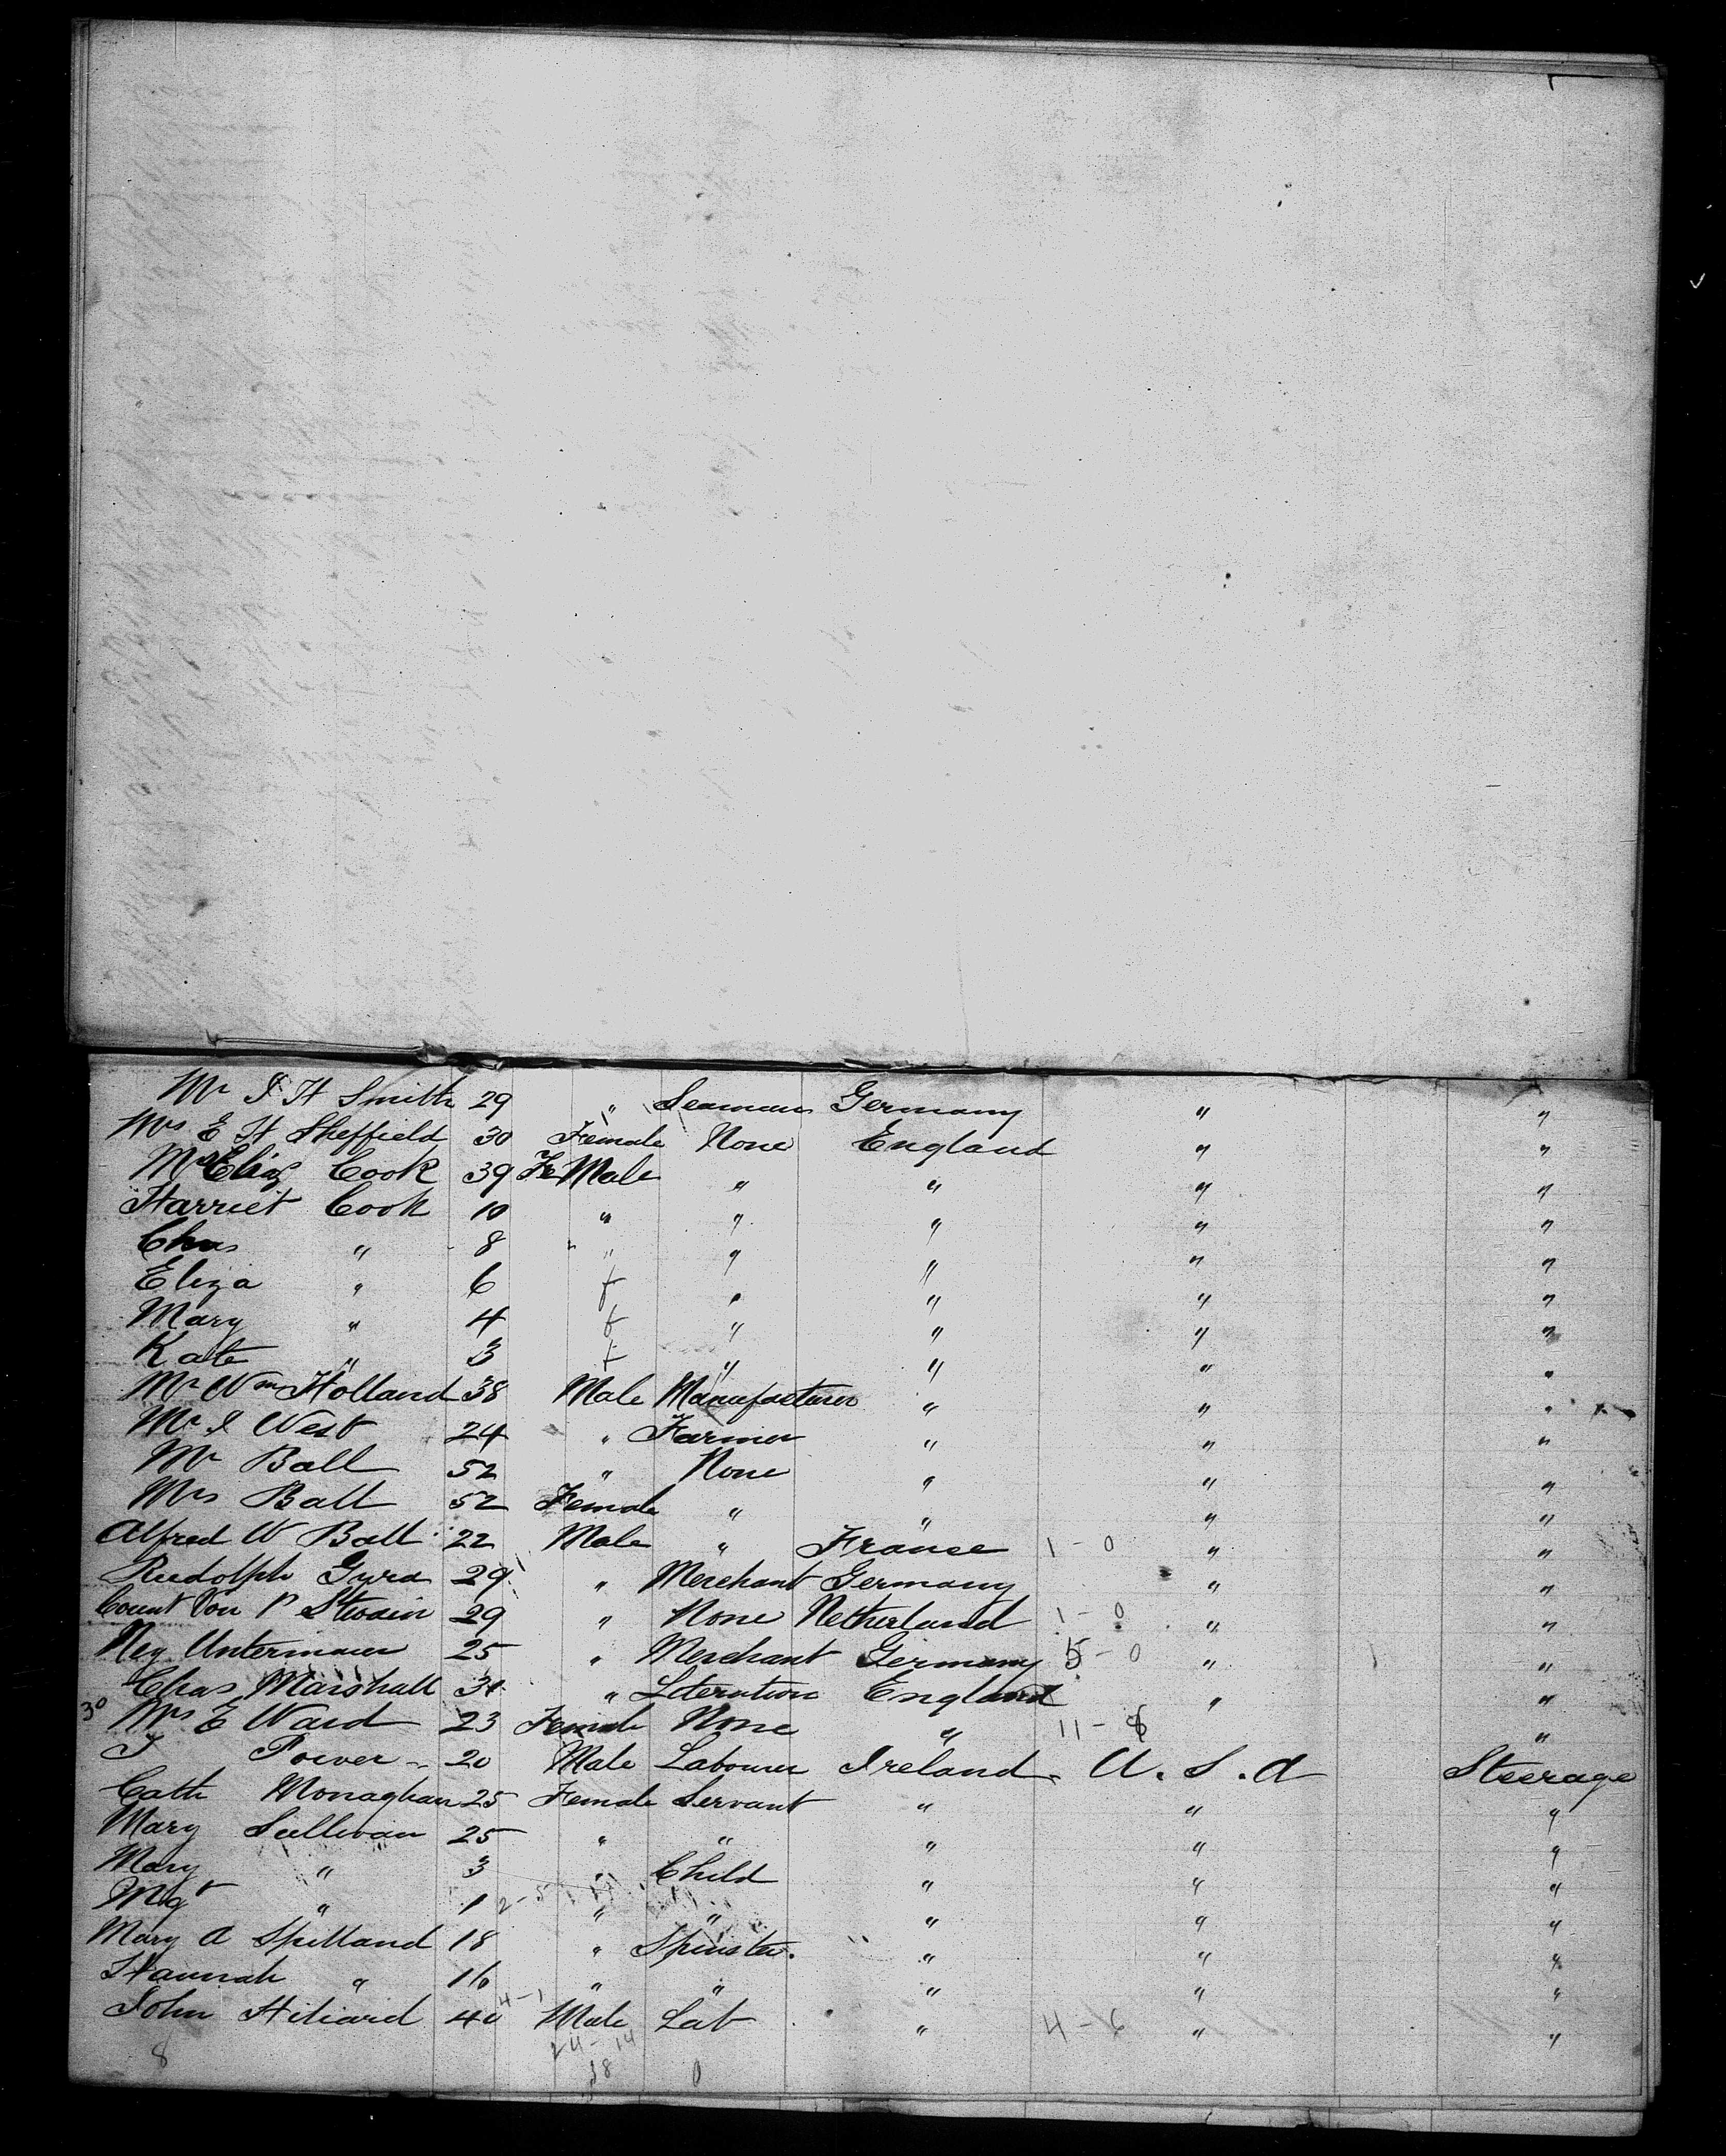 Mr J H Smith 29 " Seaman Germany " "
Mrs E H Sheffield 30 Female None England " "
Mrs Eliz Cook 39 FeMale " " " "
Harriet Cook 10 " " " " "
Chas " 8 " " " " "
Eliza " 6 f " " " "
Mary " 4 f " " " "
Kate " 3 f " " " "
Mr Wm Holland 38 Male Manufacturer " " "
Mr J West 24 " Farmer " " "
Mr Ball 52 " None " " "
Mrs Ball 52 Female " " " "
Alfred W Ball 22 Male " France 1-0 " "
Rudolph 29 " Merchant Germany " "
Count Von P 29 " None Netherland 1-0 " "
Untermauer 25 " Merchant Germany 5-0 " "
Chas Marshall 31 " England " "
30 Mrs E Ward 23 Female None " 11-8 "
J Power 20 Male Labourer Ireland U.S.A Steerage
Cath Monaghan 25 Female Servant " " "
Mary Sullivan 25 " " " " "
Mary " 3 " Child " " "
Mgt " 1 2-5 " " " " "
Mary A Spilland 18 " Spinster. " " "
Hannah " 16 " " " " "
John Hiliard 40 4-1 Male Lab " 4-6 " "
8 24-14
38 0